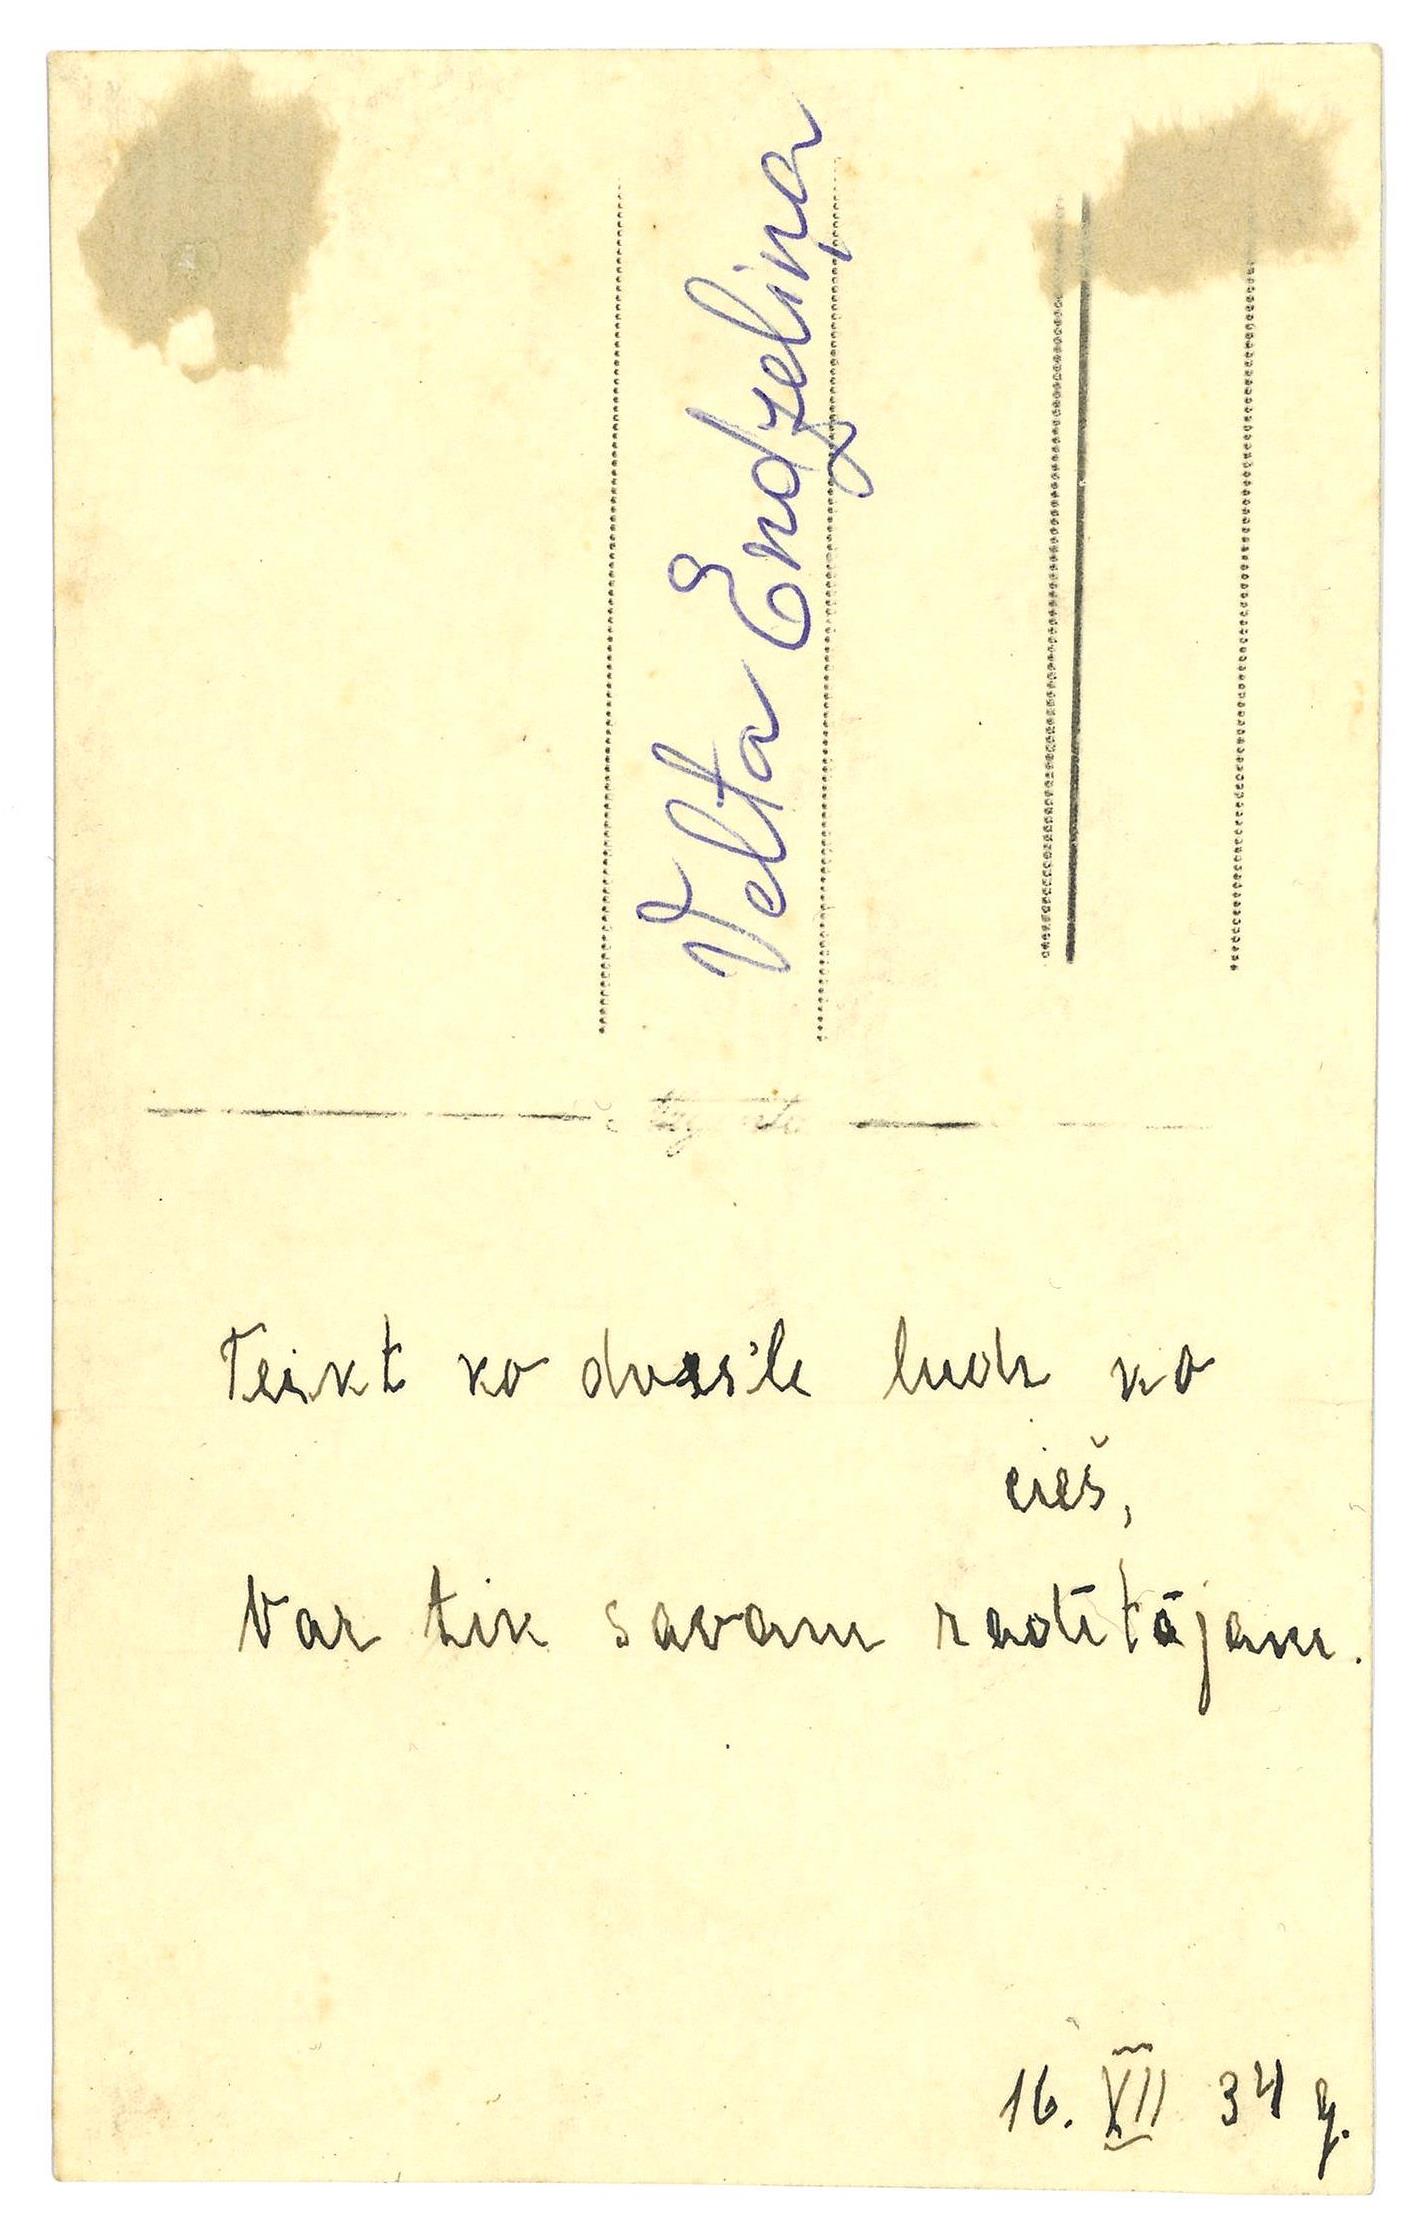 Velta Endzeliņa
Teikt ko dvēs'le lūdz ko
cieš,
Var tik savam radītājam.
16. XII 34 g.